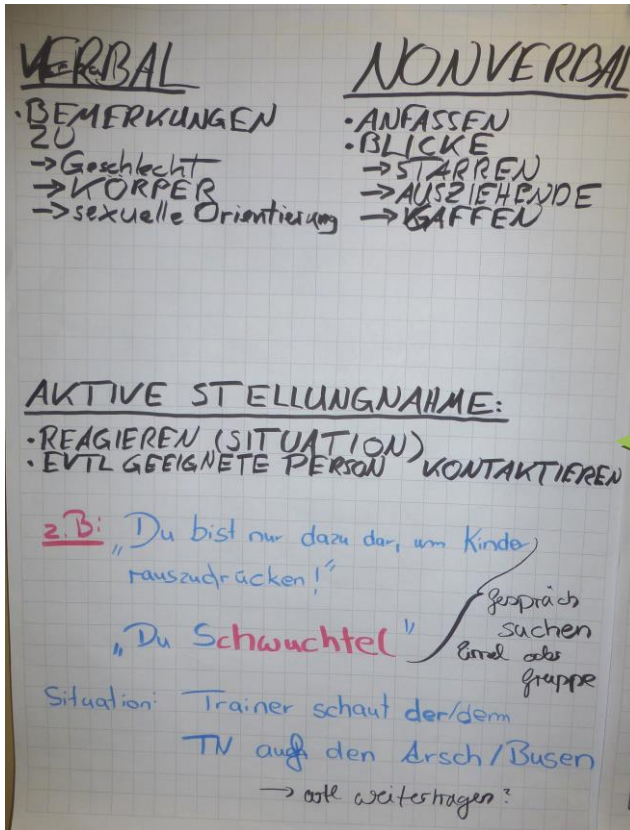 VERBAL
• BEMERKUNGEN
ZU
→ Geschlecht
→ KÖRPER
→ sexuelle Orientierung
NONVERBAL
• ANFASSEN
• BLICKE
→ STARREN
→ AUSZIEHENDE
→ GAFFEN
AKTIVE STELLUNGNAHME:
• REAGIEREN (SITUATION)
• EVTL GEEIGNETE PERSON KONTAKTIEREN
z.B: „Du bist nur dazu dar, um Kinder
rauszudrücken!“
„Du Schwuchtel“
Gespräch
suchen
Einzel oder
gruppe
Situation: Trainer schaut der/dem
TN auf den Arsch/Busen
→ weitertragen?